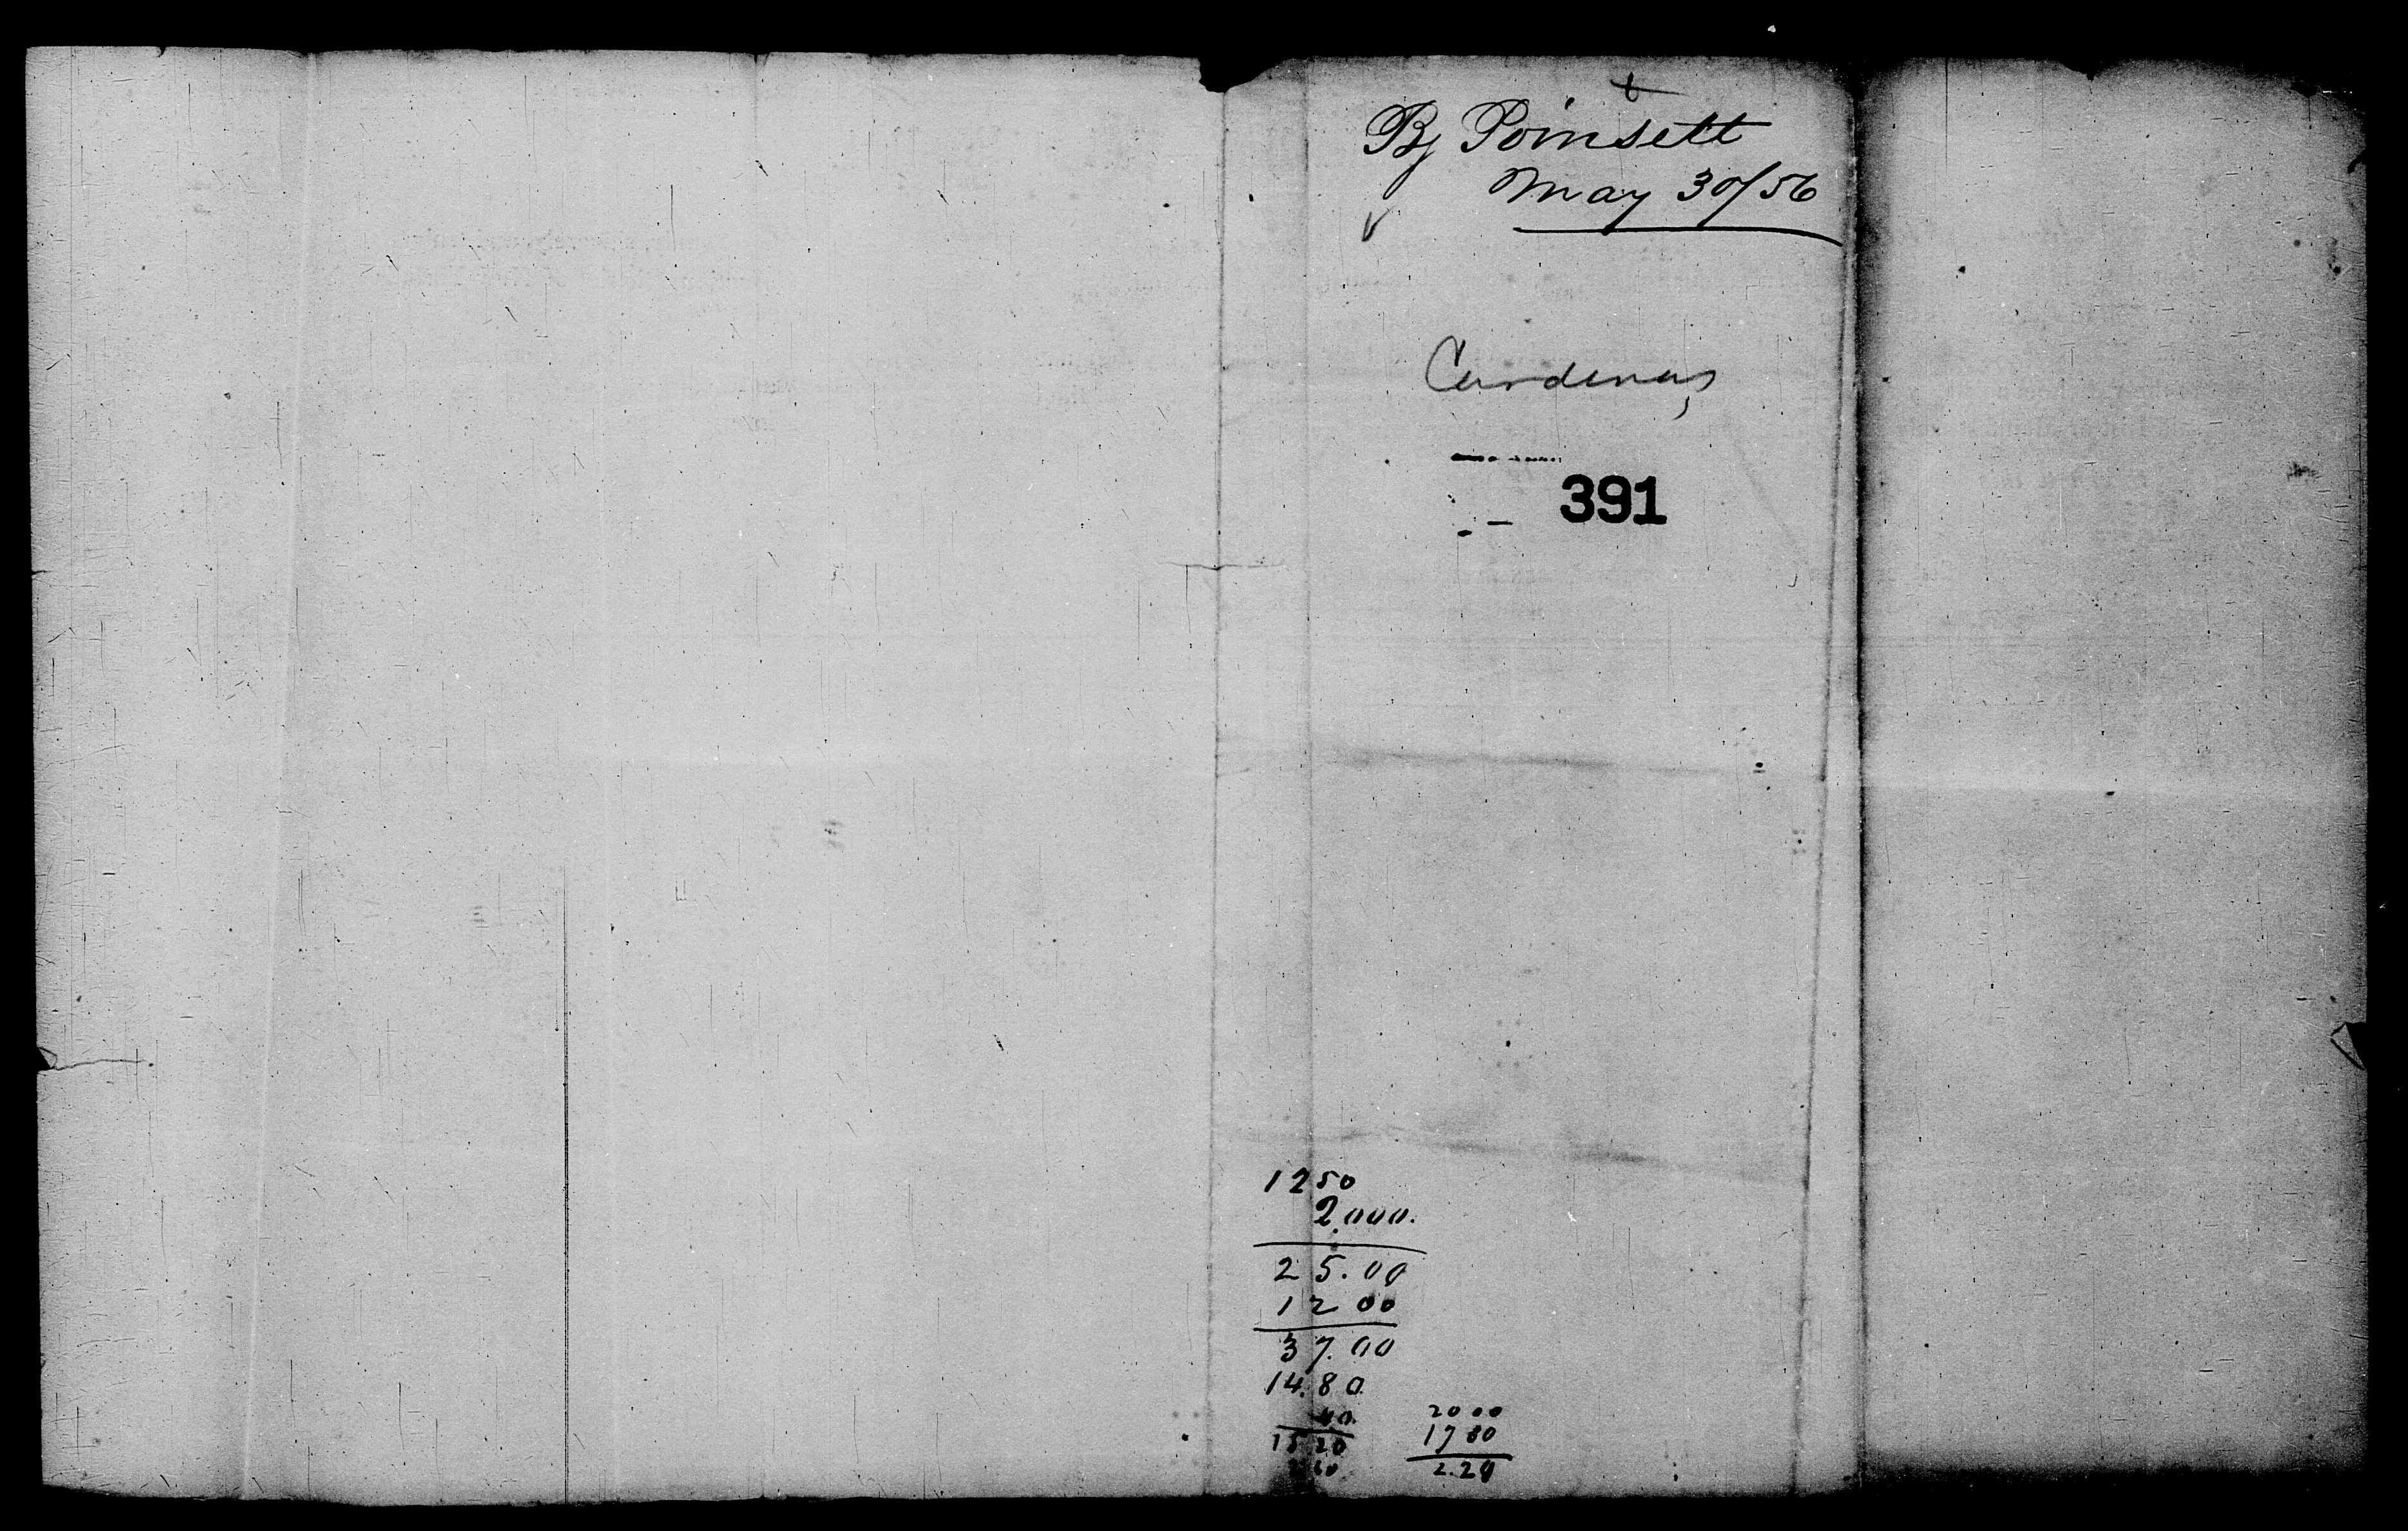 Bj Poinsett
May 30/56
Cardenas
391
1250
2.000.
25.00
12 00
37.00
14.80
40.
15 20
20 00
17 80
2.20